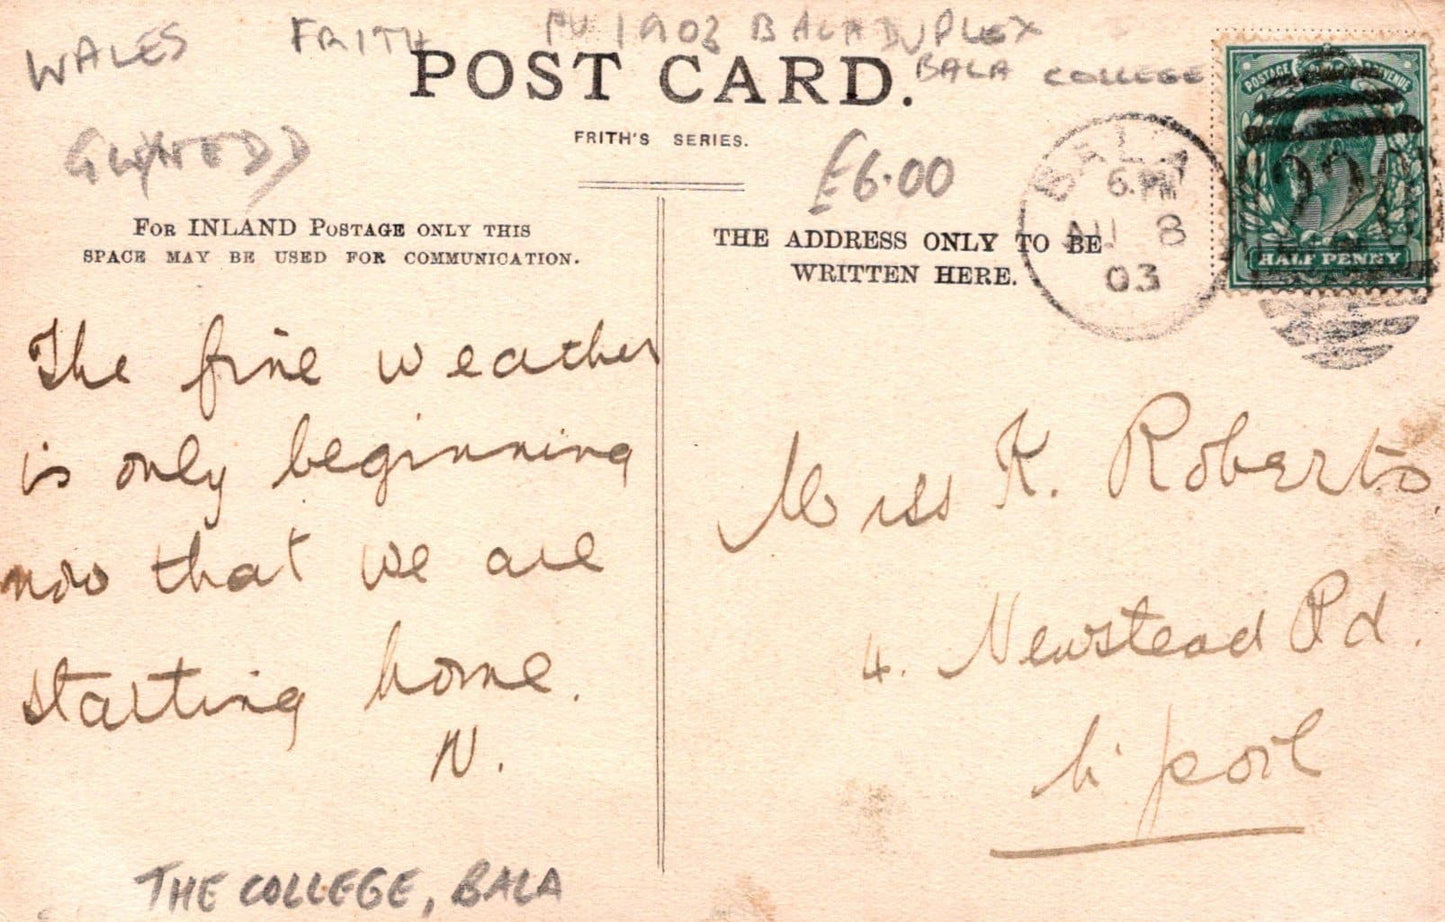 WALES FRITH PU 1903 BALA DUPLEX
BALA COLLEGE
POST CARD.
FRITH'S SERIES.
GWYNEDD
£6.00
FOR INLAND POSTAGE ONLY THIS
SPACE MAY BE USED FOR COMMUNICATION.
THE ADDRESS ONLY TO BE
WRITTEN HERE.
BALA
6. PM
AU 8
03
POSTAGE REVENUE
HALF PENNY
The fine weather
is only beginning
now that we are
starting home.
N.
Miss K. Roberts
4. Newstead Rd.
L'pool
THE COLLEGE, BALA